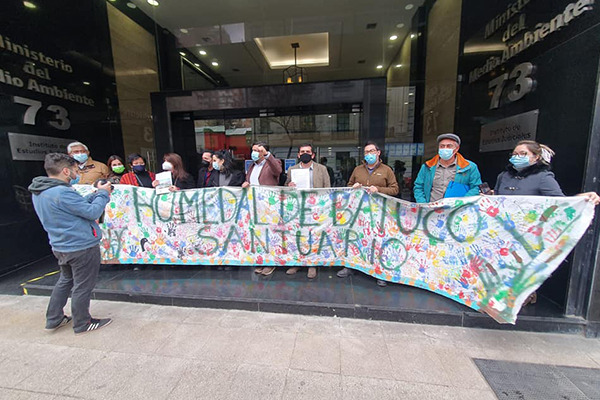 Ministerio
del
Medio Ambiente
73
Instituto de
HUMEDAL DE BATUCO
SANTUARIO
Ministerio
del
Medio Ambiente
73
Estudios Judiciales